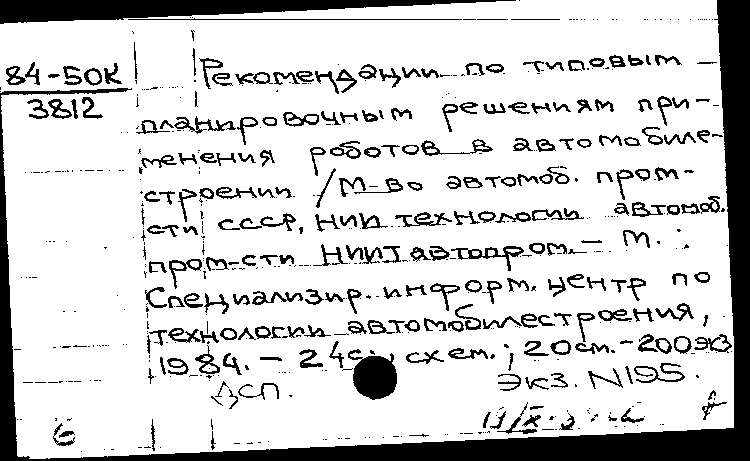 84-5ОК
3812
Рекомендации по типовым
планировочным решениям при-
менения роботов в автомобиле-
строении / М-во автомоб. пром-
сти СССР, НИИ технологии автомоб.
пром-сти НИИТавтопром. – М. :
Специализир. информ. центр по
технологии автомобилестроения,
1984. – 24с., схем. ; 20см. – 200экз
ДСП.
Экз. N195.
6